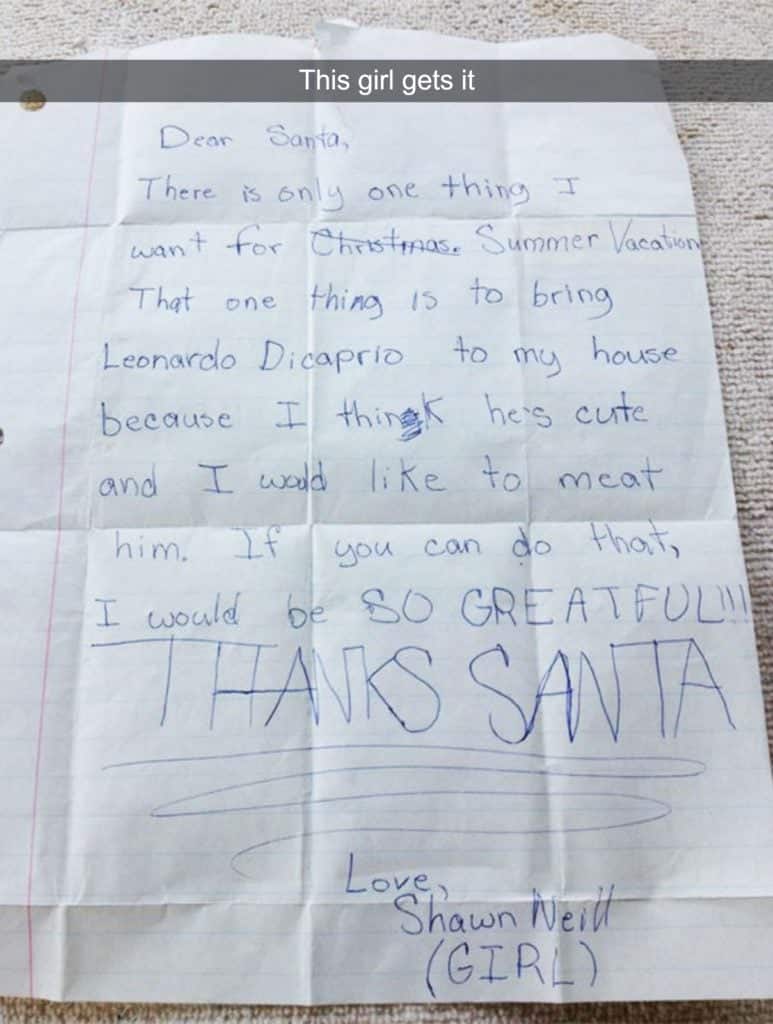 This girl gets it
Dear Santa,
There is only one thing I
want for Christmas. Summer Vacation
That one thing is to bring
Leonardo Dicaprio to my house
because I think he's cute
and I would like to meat
him. If you can do that,
I would be SO GREATFUL!!!
THANKS SANTA
Love,
Shawn Neill
(GIRL)